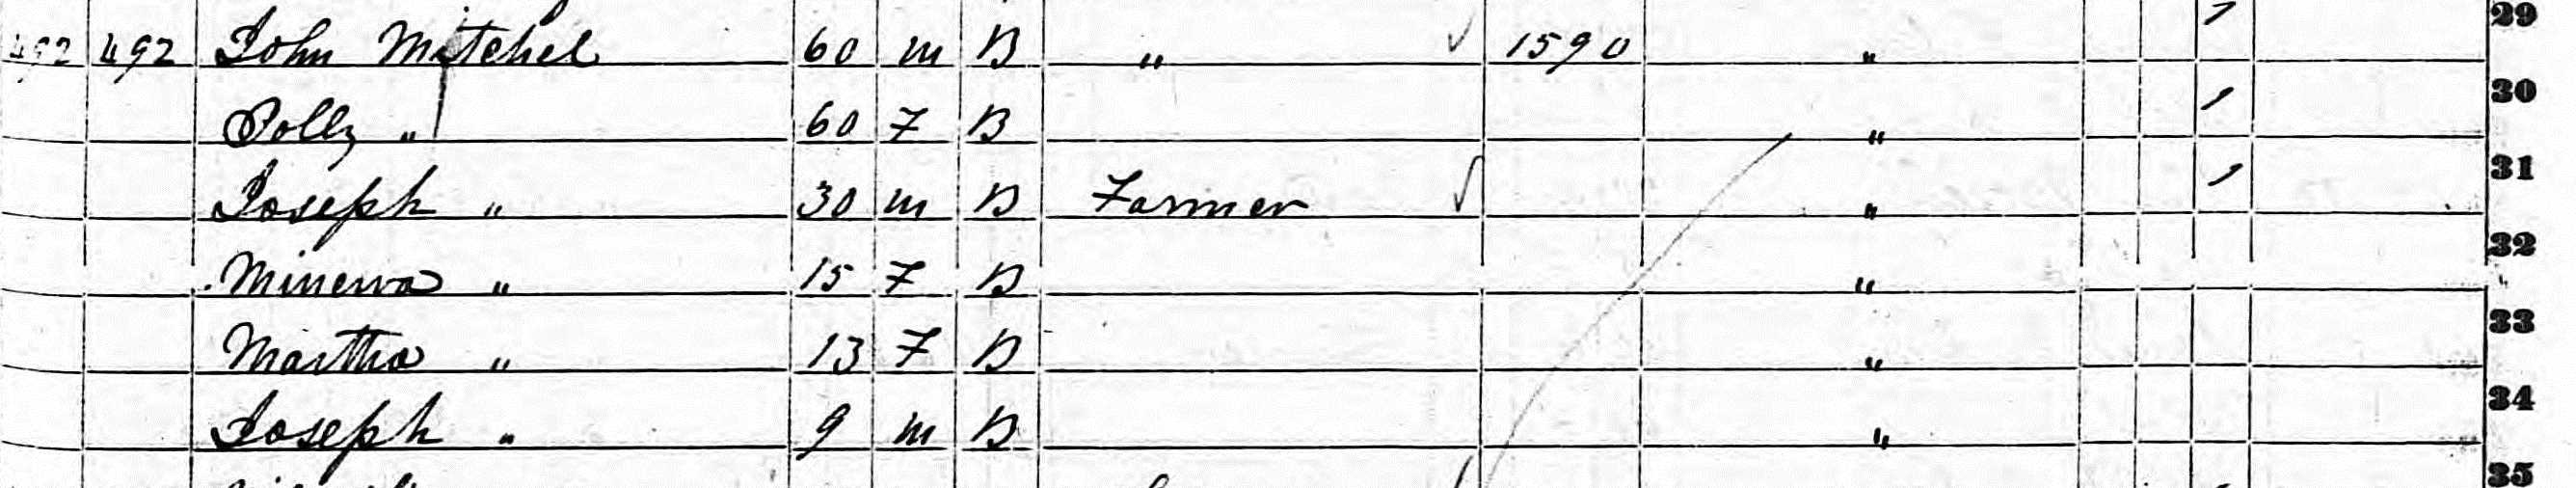 29
492 492 John Mitchel 60 m B " √ 1590 " 1
30
Polly " 60 F B " 1
31
Joseph " 30 m B Farmer √ " 1
32
Minerva " 15 F B "
33
Martha " 13 F B "
34
Joseph " 9 m B "
35